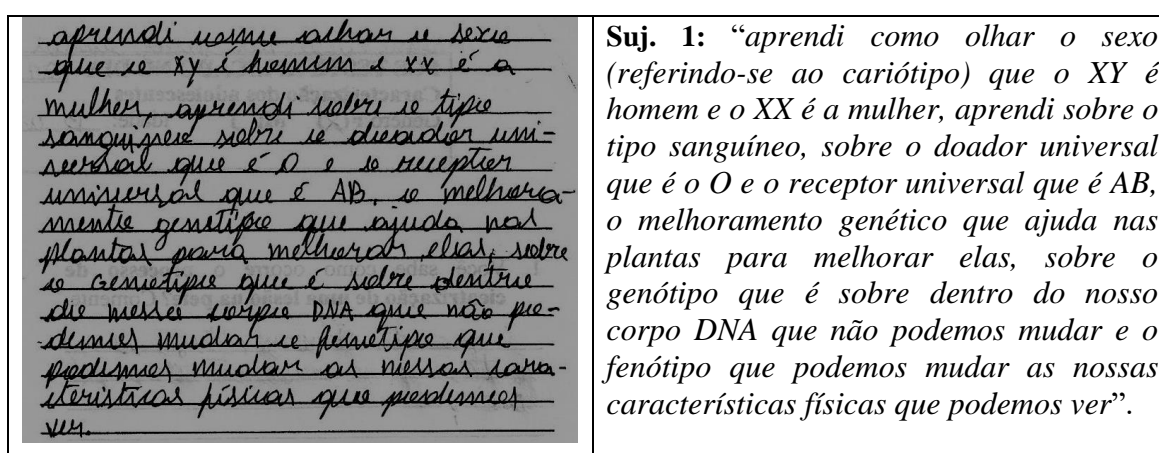 aprendi como olhar o sexo
que o XY é homem e XX é a
mulher, aprendi sobre o tipo
sanguineo sobre o doador uni-
versal que é O e o receptor
universal que é AB, o melhora-
mento genetipo que ajuda nas
plantas para melhorar elas, sobre
o Genotipo que é sobre dentro
do nosso corpo DNA que não po-
demos mudar o fenotipo que
podemos mudar as nossas cara-
cteristicas físicas que podemos
ver.
Suj. 1: “aprendi como olhar o sexo
(referindo-se ao cariótipo) que o XY é
homem e o XX é a mulher, aprendi sobre o
tipo sanguíneo, sobre o doador universal
que é o O e o receptor universal que é AB,
o melhoramento genético que ajuda nas
plantas para melhorar elas, sobre o
genótipo que é sobre dentro do nosso
corpo DNA que não podemos mudar e o
fenótipo que podemos mudar as nossas
características físicas que podemos ver”.